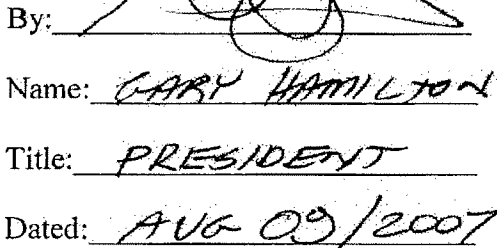 By:
Name: GARY HAMILTON
Title: PRESIDENT
Dated: AUG 09/2007